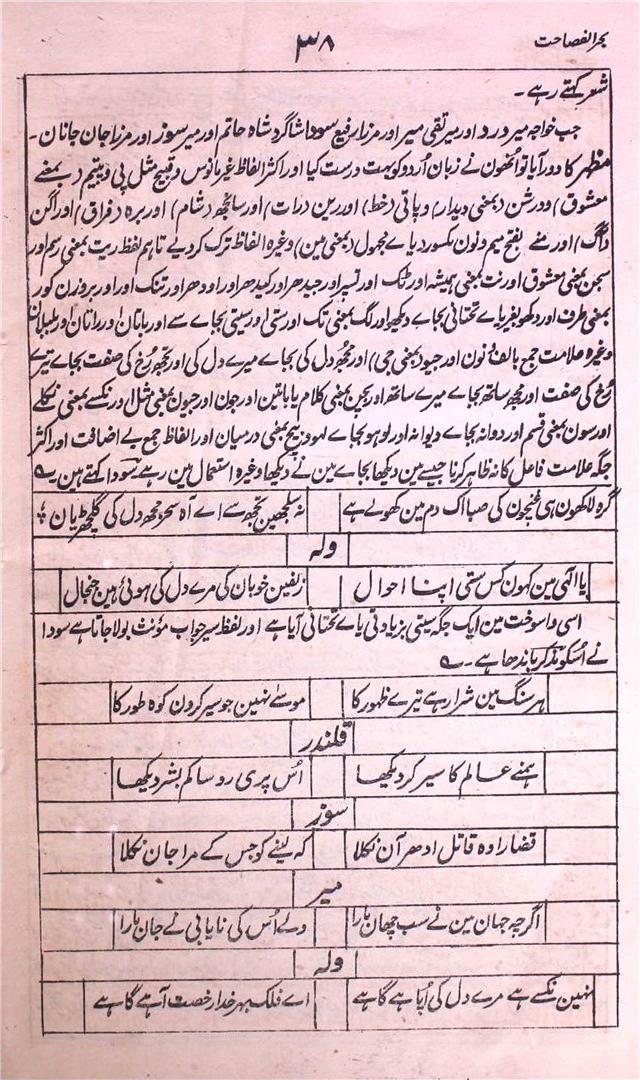 بحر الفصاحت
۳۸
شعر کہتے رہے۔
جب خواجہ میر درد اور میر تقی میر اور مرزا رفیع سودا شاگرد شاہ حاتم اور میر سوز اور مرزا جان جانان۔
مظہر کا دور آیا تو اُنھون نے زبان اُردو کو بہت درست کیا اور اکثر الفاظ غیر مانوس و قبیح مثل پی و پیتم (بمعنے
معشوق) و درشن (بمعنی دیدار) و پاتی (خط) اور رین (رات) اور سانجھ (شام) اور برہ (فراق) اور اگن
(آگ) اور منے بفتح میم و نون مکسور و یاے مجہول (بمعنی مین) وغیرہ الفاظ ترک کردیے تاہم لفظ ریت بمعنی رسم اور
سجن بمعنی معشوق اور نت بمعنی ہمیشہ اور ٹک اور تسپر اور جیدھر اور کیدھر اور اودھر اور تنک اور اور بروزن کور
بمعنی طرف اور دکھو بغیر یاے تحتانی بجاے دیکھو اور لگ بمعنی تک اور ستی اور سیتی بجاے سے اور باتان اور راتان اور بلبلان
وغیرہ علامت جمع بالف و نون اور جیو (بمعنی جی) اور مجھ دل کی بجاے میرے دل کی اور تجھ رُخ کی صفت بجاے تیرے
رُخ کی صفت اور مجھ ساتھ بجاے میرے ساتھ اور بچن بمعنی کلام یا باتین اور جون اور جیون بمعنی مثل اور نکسے بمعنی نکلے
اور سون بمعنی قسم اور دوانہ بجاے دیوانہ اور لوہو بجاے لہو و بیچ بمعنی درمیان اور الفاظ جمع بے اضافت اور اکثر
جگہ علامت فاعل کا نہ ظاہر کرنا جیسے مین دیکھا بجاے مین نے دیکھا وغیرہ استعمال مین رہے سودا کہتے ہین ؎
گرہ لاکھون ہی غنچون کی صبا اک دم مین کھولے ہے نہ سلجھین تجھ سے اے آہ سحر مجھ دل کی گلجھڑیان
ولہ
یا الٰہی مین کہون کس ستی اپنا احوال زلفین خوبان کی مرے دل کی ہوئی ہین جنجال
اسی واسوخت مین ایک جگہ سیتی بزیادتی یاے تحتانی آیا ہے اور لفظ سیر جواب مؤنث بولا جاتا ہے سودا
نے اُسکو مذکر باندھا ہے۔ ؎
ہر سنگ مین شرار ہے تیرے ظہور کا موسےٰ نہین جو سیر کرون کوہ طور کا
قلندر
ہمنے عالم کا سیر کر دیکھا اُس پری رو سا کم بشر دیکھا
سوز
قضارا وہ قاتل ادھر آن نکلا کہ لینے کو جس کے مرا جان نکلا
میر
اگرچہ جہان مین نے سب چھان مارا ولے اُس کی نایابی نے جان مارا
ولہ
نہین نکسے ہے مرے دل کی اُپاہے گاہے اے فلک بہر خدا رخصت آہے گاہے